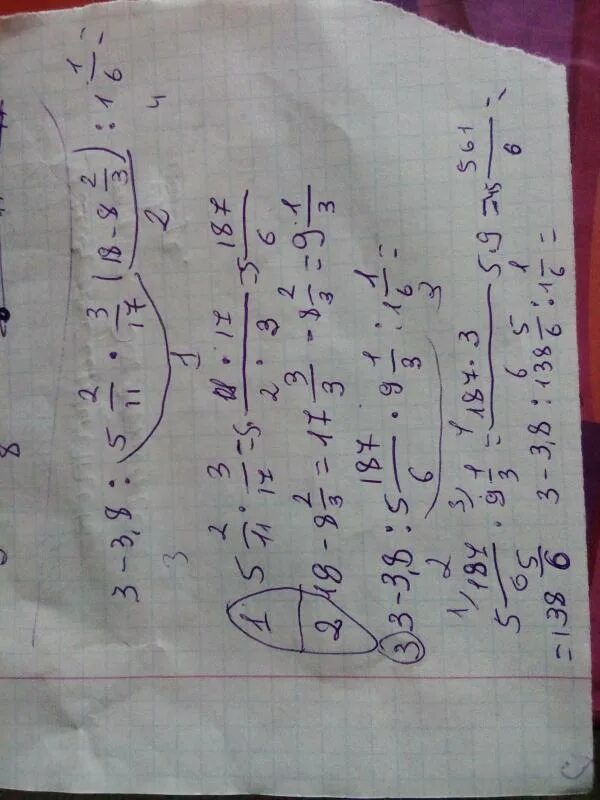 8
3 - 3,8 : 5 2/11 · 3/17 (18 - 8 2/3) : 1 1/6 =
3 1 2 4
1 5 2/11 · 3/17 = 5 11 · 17 / 2 · 3 = 5 187/6
2 18 - 8 2/3 = 17 3/3 - 8 2/3 = 9 1/3
3 3 - 3,8 : 5 187/6 · 9 1/3 : 1 1/6 =
3
5 187/6 · 9 1/3 = 187 · 3 / 5 · 9 = 45 561/6 =
= 138 5/6 3 - 3,8 : 138 5/6 : 1 1/6 =